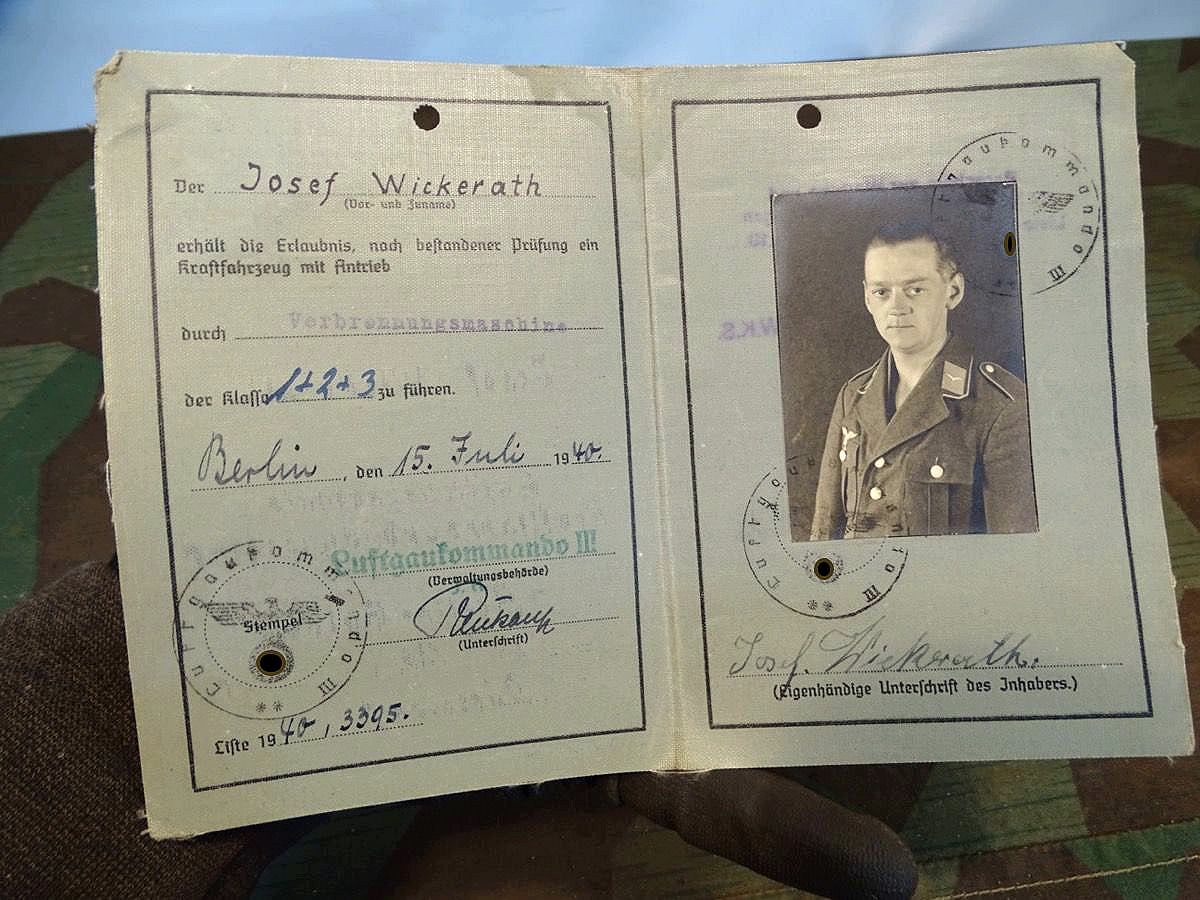 Der Josef Wickerath
(Vor- und Zuname)
erhält die Erlaubnis, nach bestandener Prüfung ein
Kraftfahrzeug mit Antrieb
durch Verbrennungsmaschine
der Klasse 1+2+3 zu führen.
Berlin, den 15. Juli 1940.
Luftgaukommando III
(Verwaltungsbehörde)
Stempel
(Unterschrift)
Luftgaukommando III
Liste 1940, 3395.
Luftgaukommando III
Luftgaukommando III
Josef. Wickerath.
(Eigenhändige Unterschrift des Inhabers.)